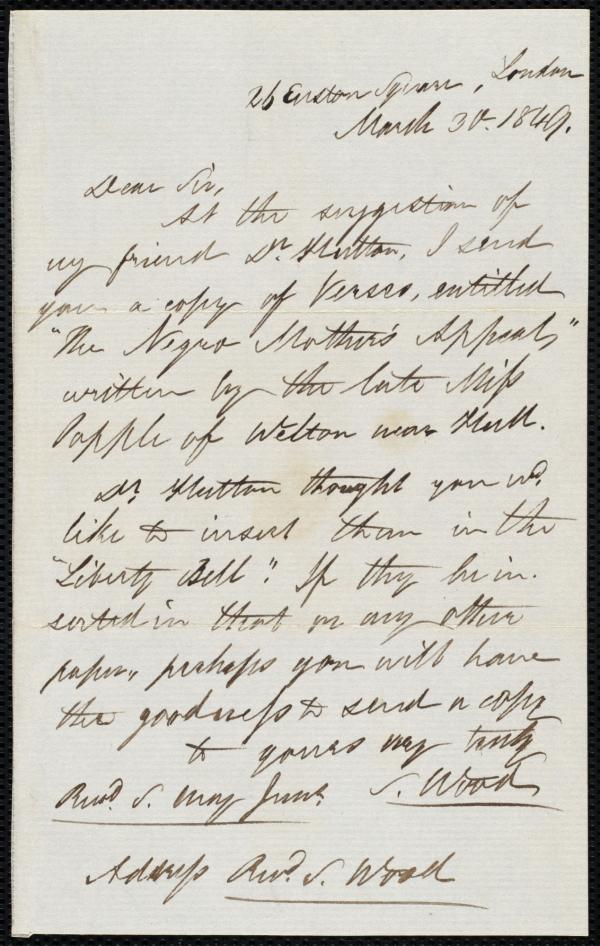 26 Euston Square, London
March 30. 1849.
Dear Sir,
At the suggestion of
my friend Dr. Hutton, I send
you a copy of Verses, entitled
"The Negro Mother's Appeal,"
written by the late Miss
Popple of Welton near Hull.
Dr. Hutton thought you wd.
like to insert them in the
"Liberty Bell". If they be in-
serted in that or any other
paper, perhaps you will have
the goodness to send a copy
to yours very truly
Revd. S. May Junr. S. Wood
Address Revd. S. Wood